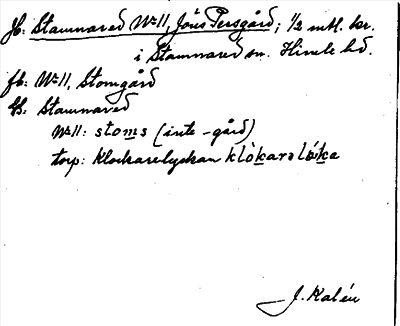 Jb: Stamnared Nr 11, Jöns Persgård; 1/2 mtl. kr.
i Stamnared sn. Himle hd.
fb: Nr 11, Stomgård
Us: Stamnared
Nr 11: stoms (inte -gård)
torp: Klockarelyckan klòkara lỳka
J. Kalén